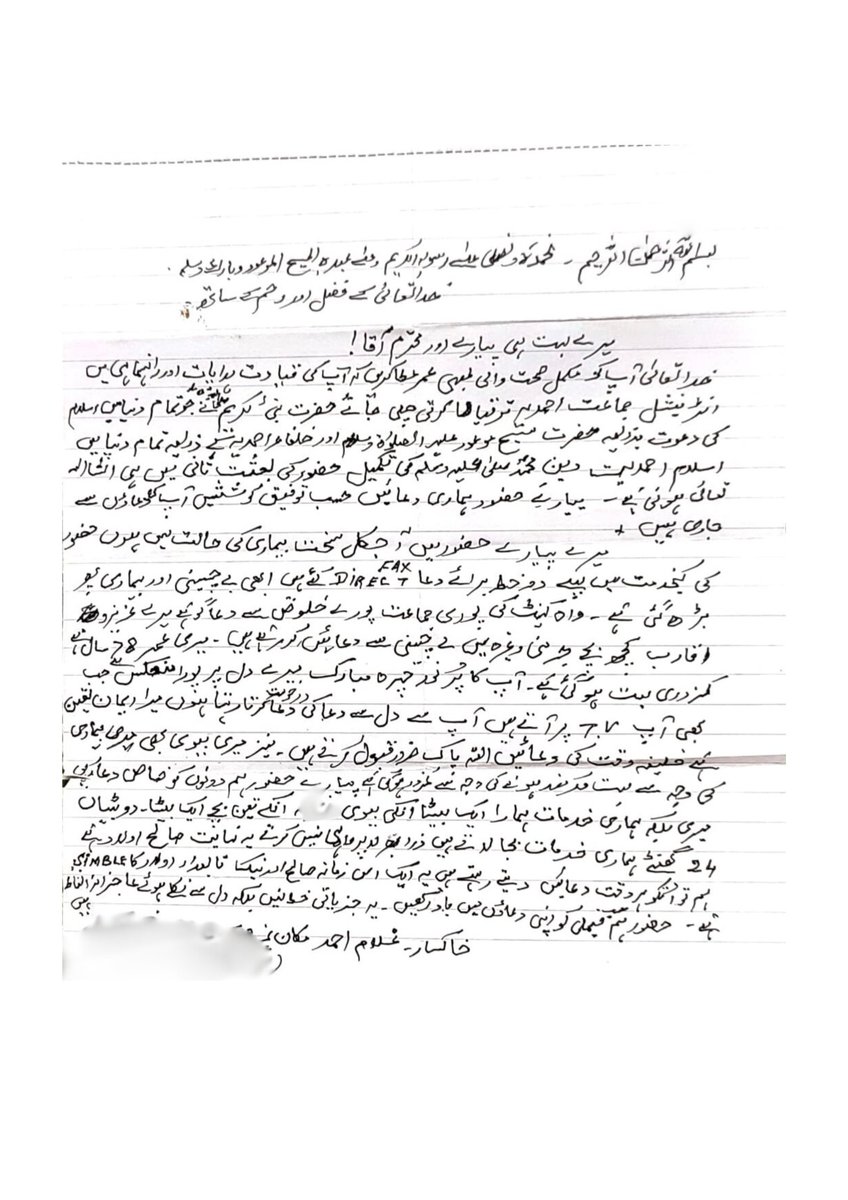 بسم اللہ الرحمن الرحیم - نحمدہ ونصلی علی رسولہ الکریم وعلی عبدہ المسیح الموعود وبارک وسلم
خدا تعالیٰ کے فضل اور رحم کے ساتھ
میرے بہت ہی پیارے اور محترم آقا!
خدا تعالیٰ آپ کو مکمل صحت والی لمبی عمر عطا کریں کہ آپ کی قیادت ہدایات اور راہنمائی میں
انٹرنیشنل جماعت احمدیہ ترقیات کرتی چلی جائے حضرت نبی کریم جو تمام دنیا میں اسلام
کی دعوت بذریعہ حضرت مسیح موعود علیہ الصلوۃ وسلام اور خلفاء احمدیت کے ذریعہ تمام دنیا میں
اسلام احمدیت دین محمد صلی علیہ وسلم کی تکمیل حضور کی بعثت ثانی میں ہی انشااللہ
تعالیٰ ہونی ہے - پیارے حضور ہماری دعائیں حسب توفیق کوششیں آپ کی دعاؤں سے
جاری ہیں +
میرے پیارے حضور میں آجکل سخت بیماری کی حالت میں ہوں حضور
کی خدمت میں پہلے دو خط برائے دعا DIRECT FAX کئے ہیں ابھی بے چینی اور بیماری
بڑھ گئی ہے - واہ کینٹ کی پوری جماعت پورے خلوص سے دعا گو ہے میرے عزیز و
اقارب کچھ بچے جرمنی وغیرہ میں بے چینی سے دعائیں کر رہے ہیں - میری عمر 78 سال ہے
کمزوری بہت ہو گئی ہے - آپ کا پُر نور چہرہ مبارک میرے دل پر پورا منعکس ہے جب
بھی آپ T.V پر آتے ہیں آپ سے دل سے دعا کی درخواست کرتا رہتا ہوں میرا ایمان یقین
ہے خلیفہ وقت کی دعائیں اللہ پاک ضرور قبول کرتے ہیں - نیز میری بیوی بھی میری بیماری
کی وجہ سے بہت فکر مند ہونے کی وجہ سے کمزور ہو گئی ہے پیارے حضور ہم دونوں کو خاص دعا کریں
میری بلکہ ہماری خدمات ہمارا ایک بیٹا انکی بیوی ، انکے تین بچے ایک بیٹا - دو بیٹیاں
24 گھنٹے ہماری خدمات بجا لاتے ہیں ذرا بھر نہیں کرتے یہ نہایت صالح اولاد ہے
ہم تو انکو ہر وقت دعائیں دیتے رہتے ہیں یہ ایک اس زمانہ صالح اور نیک تابعدار اولاد کا
ہے - حضور ہم فیملی کو اپنی دعاؤں میں یاد رکھیں - یہ جذباتی نہیں بلکہ دل سے نکلے ہوئے عاجزانہ الفاظ
ہیں
خاکسار - غلام احمد مکان